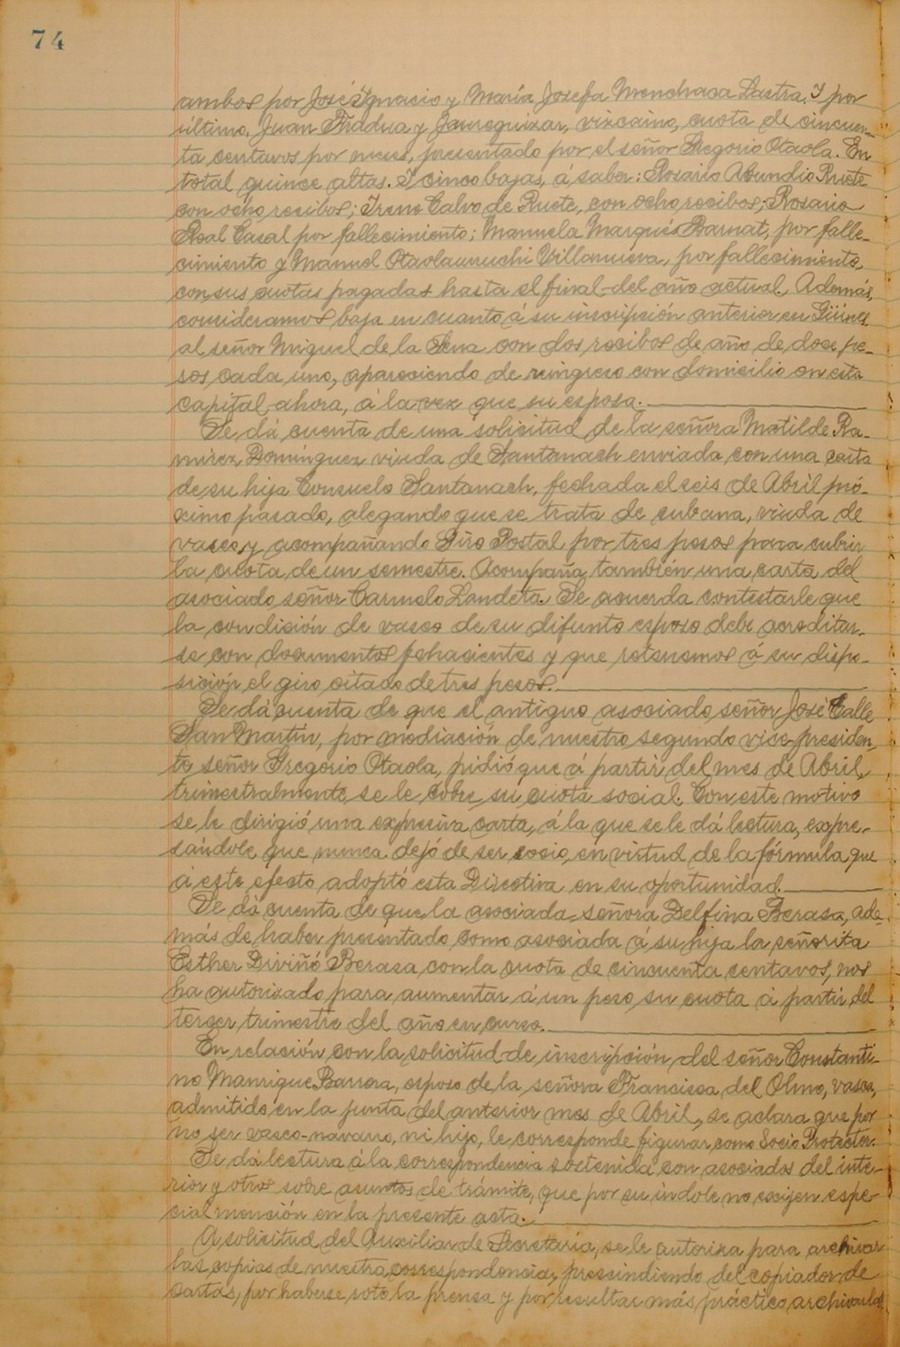 74
ambos por José Ignacio y María Josefa Menchaca Lastra. Y por
último, Juan y Jaureguizar, vizcaino, cuota de cincuen-
ta centavos por meses, presentado por el señor Gregorio Otaola. En
total quince altas. Y cinco bajas, a saber: Rosario Abundio Ruete
con ocho recibos; Irene Calvo de Ruete, con ocho recibos; Rosario
Casal por fallecimiento; Manuela Marqués Barnat, por falle-
cimiento y Manuel Villanueva, por fallecimiento,
con sus cuotas pagadas hasta el final del año actual. Además,
consideramos baja en cuanto á su inscripción anterior en Güines
al señor Miguel de la con dos recibos de año de doce pe-
sos cada uno, apareciendo de reingreso con domicilio en esta
capital ahora, á la vez que su esposa.
Se dá cuenta de una solicitud de la señora Matilde Ra-
mirez Dominguez viuda de Santanach enviada con una carta
de su hija Consuelo Santanach, fechada el seis de Abril pró-
ximo pasado, alegando que se trata de cubana, viuda de
vasco, y acompañando Giro Postal por tres pesos para cubrir
la cuota de un semestre. Acompaña también una carta del
asociado señor Carmelo Landeta. Se acuerda contestarle que
la condición de vasco de su difunto esposo debe acreditar-
se con documentos fehacientes y que retenemos á su dispo-
sición el giro citado de tres pesos.
Se dá cuenta de que el antiguo asociado señor José Calle
San Martin, por mediación de nuestro segundo vice-presiden-
te señor Gregorio Otaola, pidió que á partir del mes de Abril,
trimestralmente, se le cobre su cuota social. Con este motivo
se le dirigió una expresiva carta, á la que se le dá lectura, expre-
sándole que nunca dejó de ser socio, en virtud de la fórmula que
á este efecto adoptó esta Directiva en su oportunidad.
Se dá cuenta de que la asociada señora Delfina Berasa, ade-
más de haber presentado como asociada á su hija la señorita
Esther Diviñó Berasa, con la cuota de cincuenta centavos, nos
ha autorizado para aumentar á un peso su cuota á partir del
tercer trimestre del año en curso.
En relación con la solicitud de inscripción del señor Constanti-
no Manrique Barrera, esposo de la señora Francisca del Olmo, vasca,
admitido en la junta del anterior mes de Abril, se aclara que por
no ser vasco-navarro, ni hijo, le corresponde figurar como Socio Protector.
Se dá lectura á la correspondencia sostenida con asociados del inte-
rior y otros sobre asuntos de trámite, que por su índole no exijen espe-
cial mención en la presente acta.
A solicitud del Auxiliar de Secretaría, se le autoriza para archivar
las copias de nuestra correspondencia, prescindiendo del copiador de
cartas, por haberse roto la prensa y por resultar más práctico archivarlas